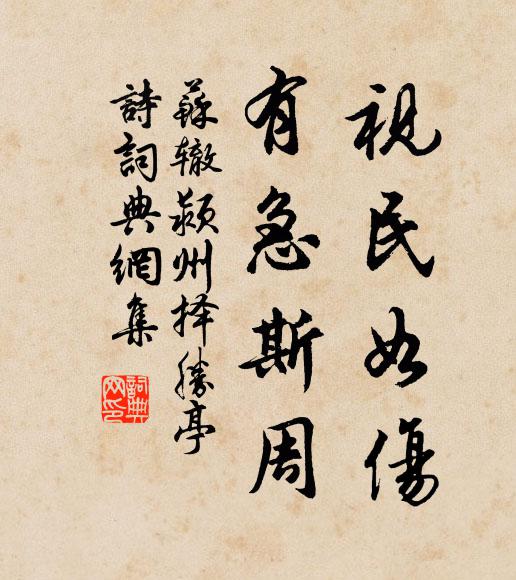 視民如傷
有急斯周
蘇辙颍州择勝亭
詩詞典網集
詞典网印